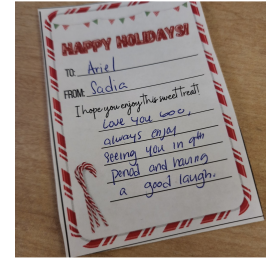 HAPPY HOLIDAYS!
TO: Ariel
FROM: Sadia
I hope you enjoy this sweet treat!
Love you boo,
always enjoy
seeing you in 9th
period and having
a good laugh.